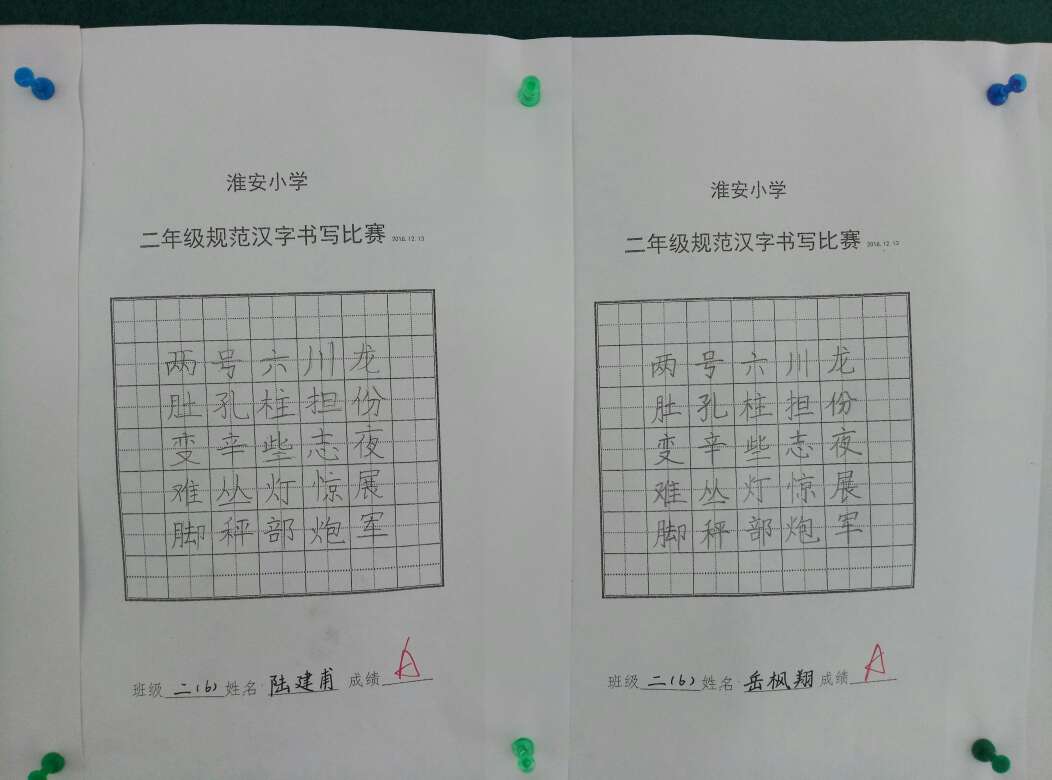 淮安小学
二年级规范汉字书写比赛 2016.12.13
两号六川龙
肚孔柱担份
变辛些志夜
难丛灯惊展
脚秤部炮军
班级 二(6) 姓名 陆建甫 成绩 A
淮安小学
二年级规范汉字书写比赛 2016.12.13
两号六川龙
肚孔柱担份
变辛些志夜
难丛灯惊展
脚秤部炮军
班级 二(6) 姓名 岳枫翔 成绩 A